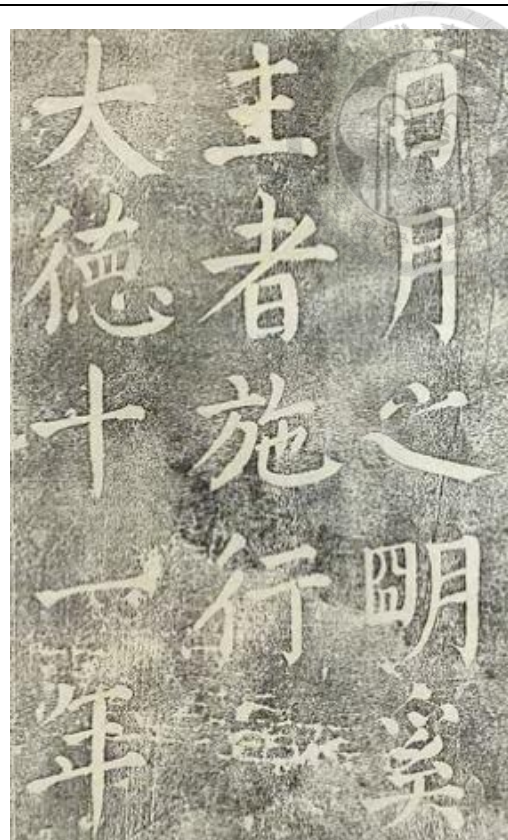 日月之明奚
主者施行
大德十一年